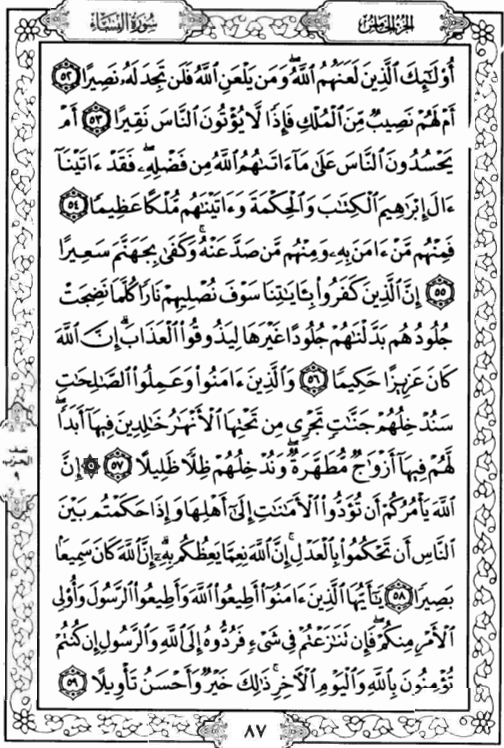 سُورَةُ النِّسَاءِ
الجُزْءُ الخَامِسُ
أُوْلَٰٓئِكَ ٱلَّذِينَ لَعَنَهُمُ ٱللَّهُۖ وَمَن يَلْعَنِ ٱللَّهُ فَلَن تَجِدَ لَهُۥ نَصِيرًا ٥٢
أَمْ لَهُمْ نَصِيبٌ مِّنَ ٱلْمُلْكِ فَإِذًا لَّا يُؤْتُونَ ٱلنَّاسَ نَقِيرًا ٥٣ أَمْ
يَحْسُدُونَ ٱلنَّاسَ عَلَىٰ مَآ ءَاتَىٰهُمُ ٱللَّهُ مِن فَضْلِهِۦۖ فَقَدْ ءَاتَيْنَآ
ءَالَ إِبْرَٰهِيمَ ٱلْكِتَٰبَ وَٱلْحِكْمَةَ وَءَاتَيْنَٰهُم مُّلْكًا عَظِيمًا ٥٤
فَمِنْهُم مَّنْ ءَامَنَ بِهِۦ وَمِنْهُم مَّن صَدَّ عَنْهُۚ وَكَفَىٰ بِجَهَنَّمَ سَعِيرًا
٥٥ إِنَّ ٱلَّذِينَ كَفَرُواْ بِـَٔايَٰتِنَا سَوْفَ نُصْلِيهِمْ نَارًا كُلَّمَا نَضِجَتْ
جُلُودُهُم بَدَّلْنَٰهُمْ جُلُودًا غَيْرَهَا لِيَذُوقُواْ ٱلْعَذَابَۗ إِنَّ ٱللَّهَ
كَانَ عَزِيزًا حَكِيمًا ٥٦ وَٱلَّذِينَ ءَامَنُواْ وَعَمِلُواْ ٱلصَّٰلِحَٰتِ
سَنُدْخِلُهُمْ جَنَّٰتٍ تَجْرِى مِن تَحْتِهَا ٱلْأَنْهَٰرُ خَٰلِدِينَ فِيهَآ أَبَدًاۖ
لَّهُمْ فِيهَآ أَزْوَٰجٌ مُّطَهَّرَةٌۖ وَنُدْخِلُهُمْ ظِلًّا ظَلِيلًا ٥٧ ۞ إِنَّ
ٱللَّهَ يَأْمُرُكُمْ أَن تُؤَدُّواْ ٱلْأَمَٰنَٰتِ إِلَىٰٓ أَهْلِهَا وَإِذَا حَكَمْتُم بَيْنَ
ٱلنَّاسِ أَن تَحْكُمُواْ بِٱلْعَدْلِۚ إِنَّ ٱللَّهَ نِعِمَّا يَعِظُكُم بِهِۦٓۗ إِنَّ ٱللَّهَ كَانَ سَمِيعَۢا
بَصِيرًا ٥٨ يَٰٓأَيُّهَا ٱلَّذِينَ ءَامَنُوٓاْ أَطِيعُواْ ٱللَّهَ وَأَطِيعُواْ ٱلرَّسُولَ وَأُوْلِى
ٱلْأَمْرِ مِنكُمْۖ فَإِن تَنَٰزَعْتُمْ فِى شَىْءٍ فَرُدُّوهُ إِلَى ٱللَّهِ وَٱلرَّسُولِ إِن كُنتُمْ
تُؤْمِنُونَ بِٱللَّهِ وَٱلْيَوْمِ ٱلْأَخِرِۚ ذَٰلِكَ خَيْرٌ وَأَحْسَنُ تَأْوِيلًا ٥٩
٨٧